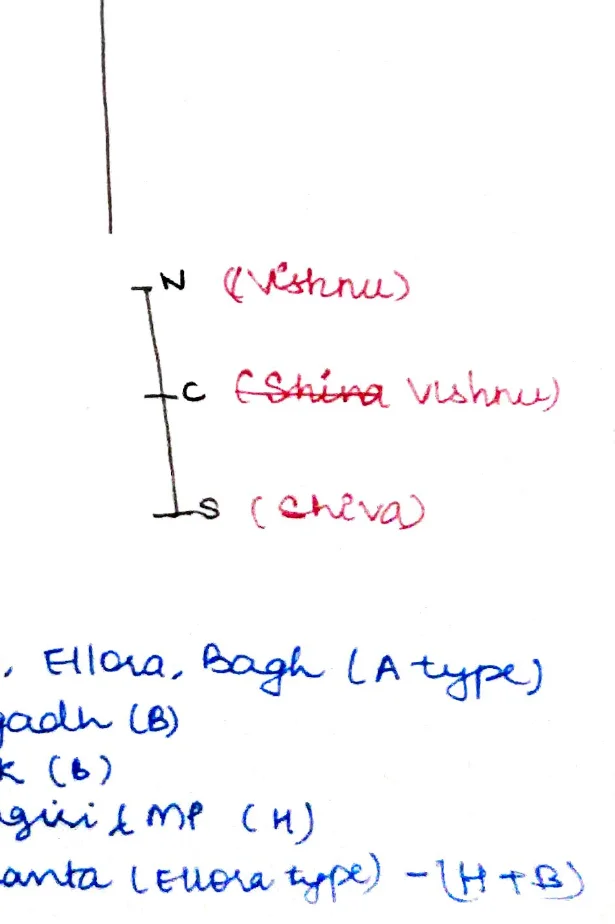 N (Vishnu)
C (Shiva Vishnu)
S (Shiva)
, Ellora, Bagh (A type)
gadh (B)
k (B)
giri & MP (H)
anta (Ellora type) - (H + B)